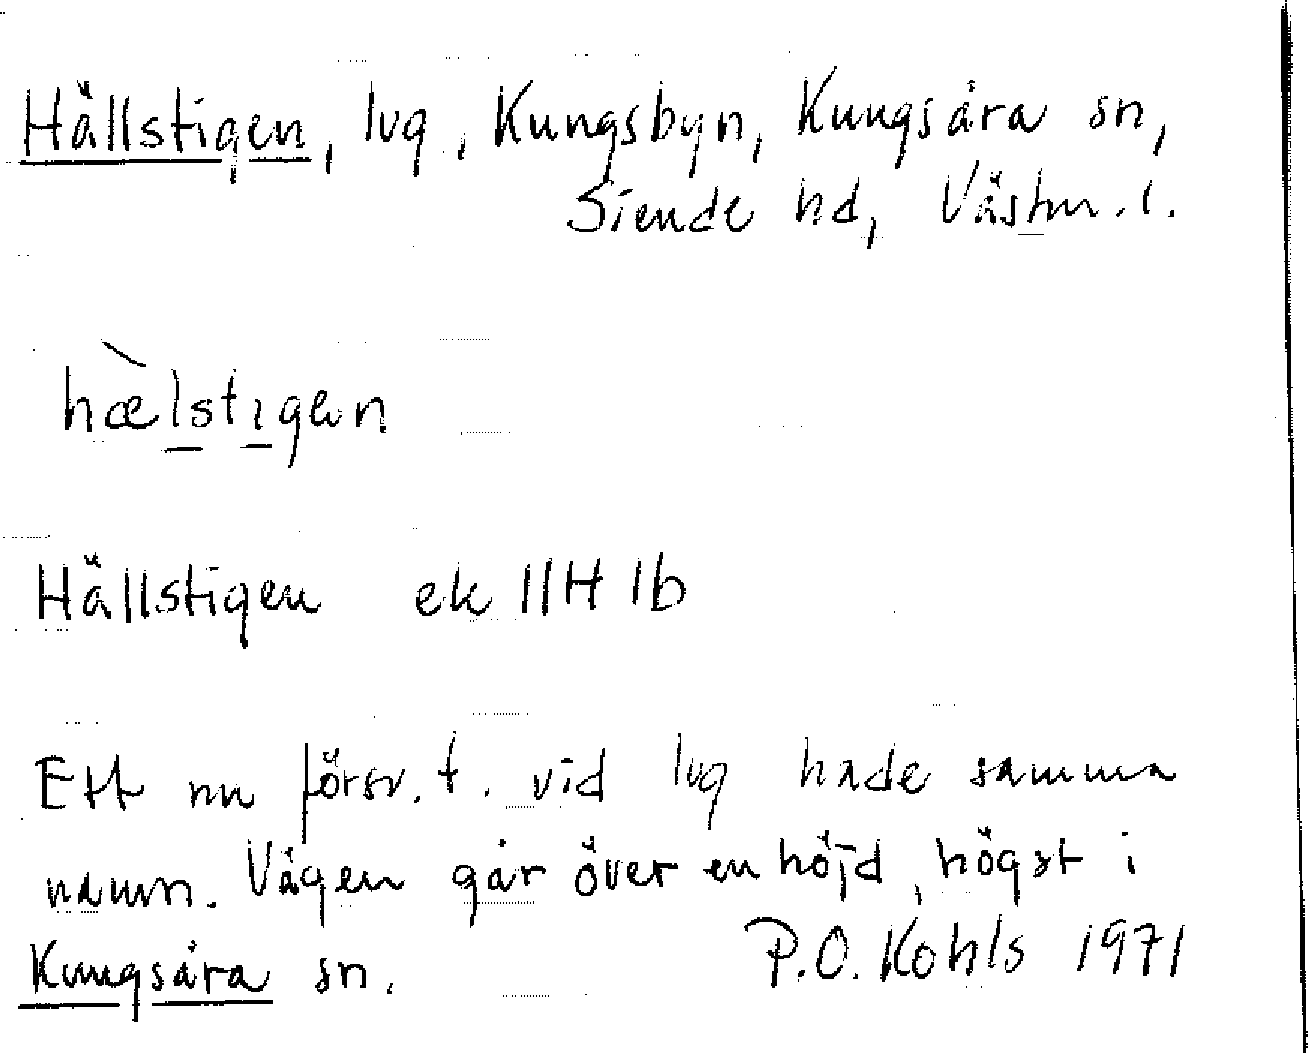 Hällstigen, lvg, Kungsbyn, Kungsåra sn,
Siende hd, Västm. l.
hæ̀lstigen
Hällstigen ek 11H 1b
Ett nu försv. t. vid lvg hade samma
namn. Vägen går över en höjd, högst i
Kungsåra sn. P.O. Kohls 1971